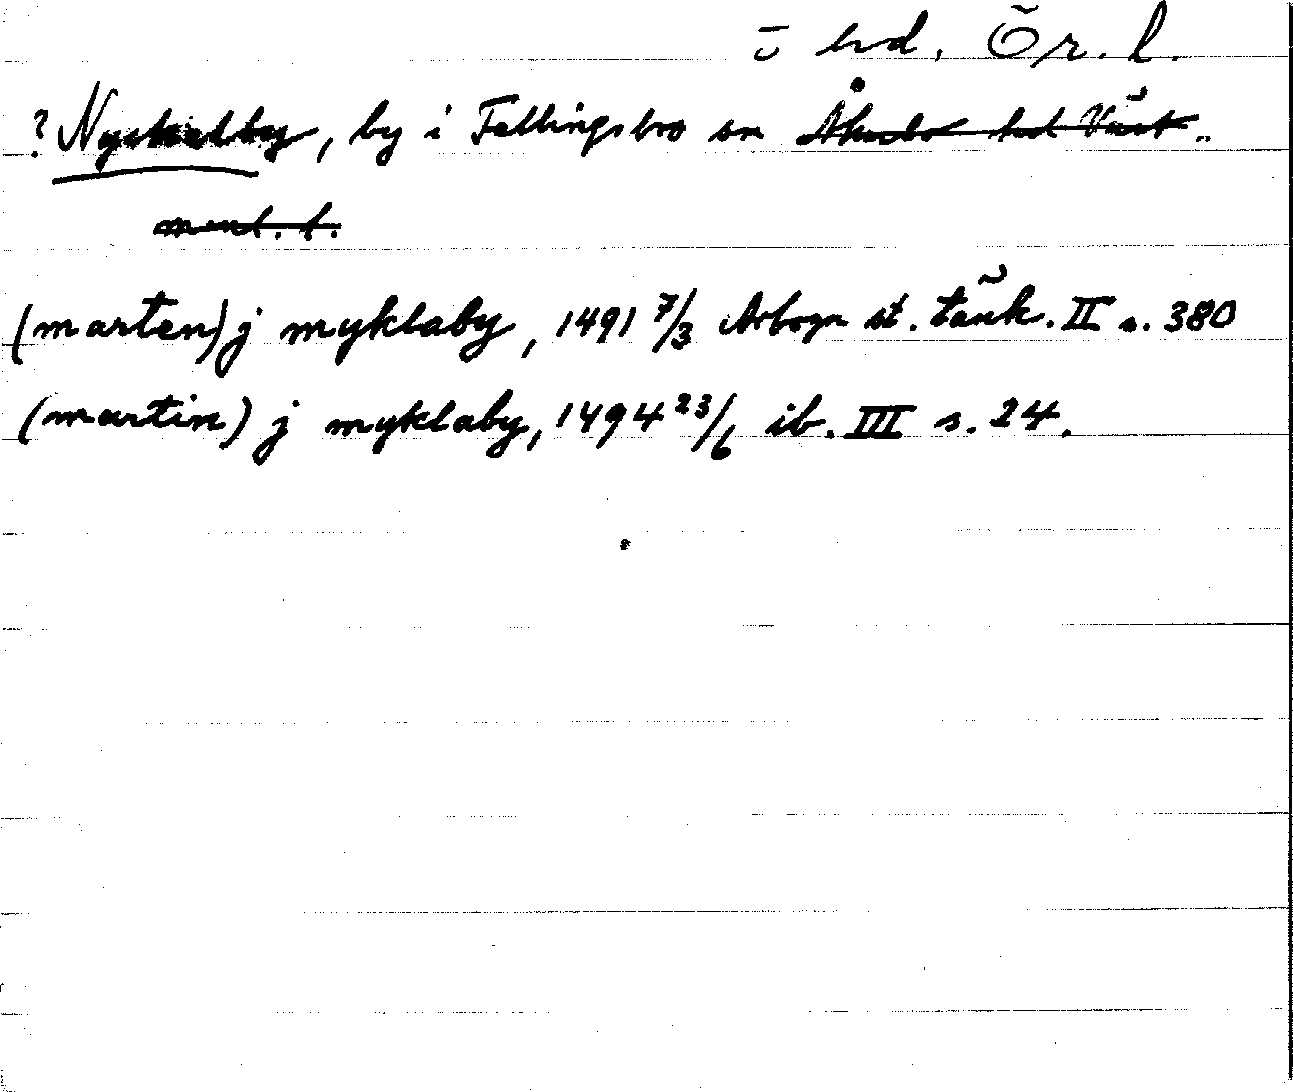 ⹀ hd, Ör. l.
? Nyckelby, by i Fellingsbro sn Åkerbo hd Väst-
manl. l.
(marten) j myklaby, 1491 7/3 Arboga st. tänk. II s. 380
(martin) j myklaby, 1494 23/6 ib. III s. 24.